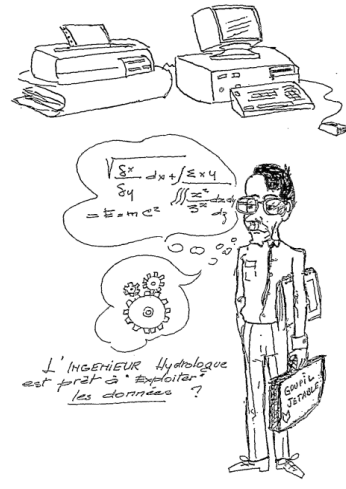 √δx/δy dx + ∫Σxy
= E = mc² ∭ x²/3x dx dy dz
L'INGENIEUR Hydrologue
est prêt à "Exploiter"
les données ?
GOUPIL
JETABLE